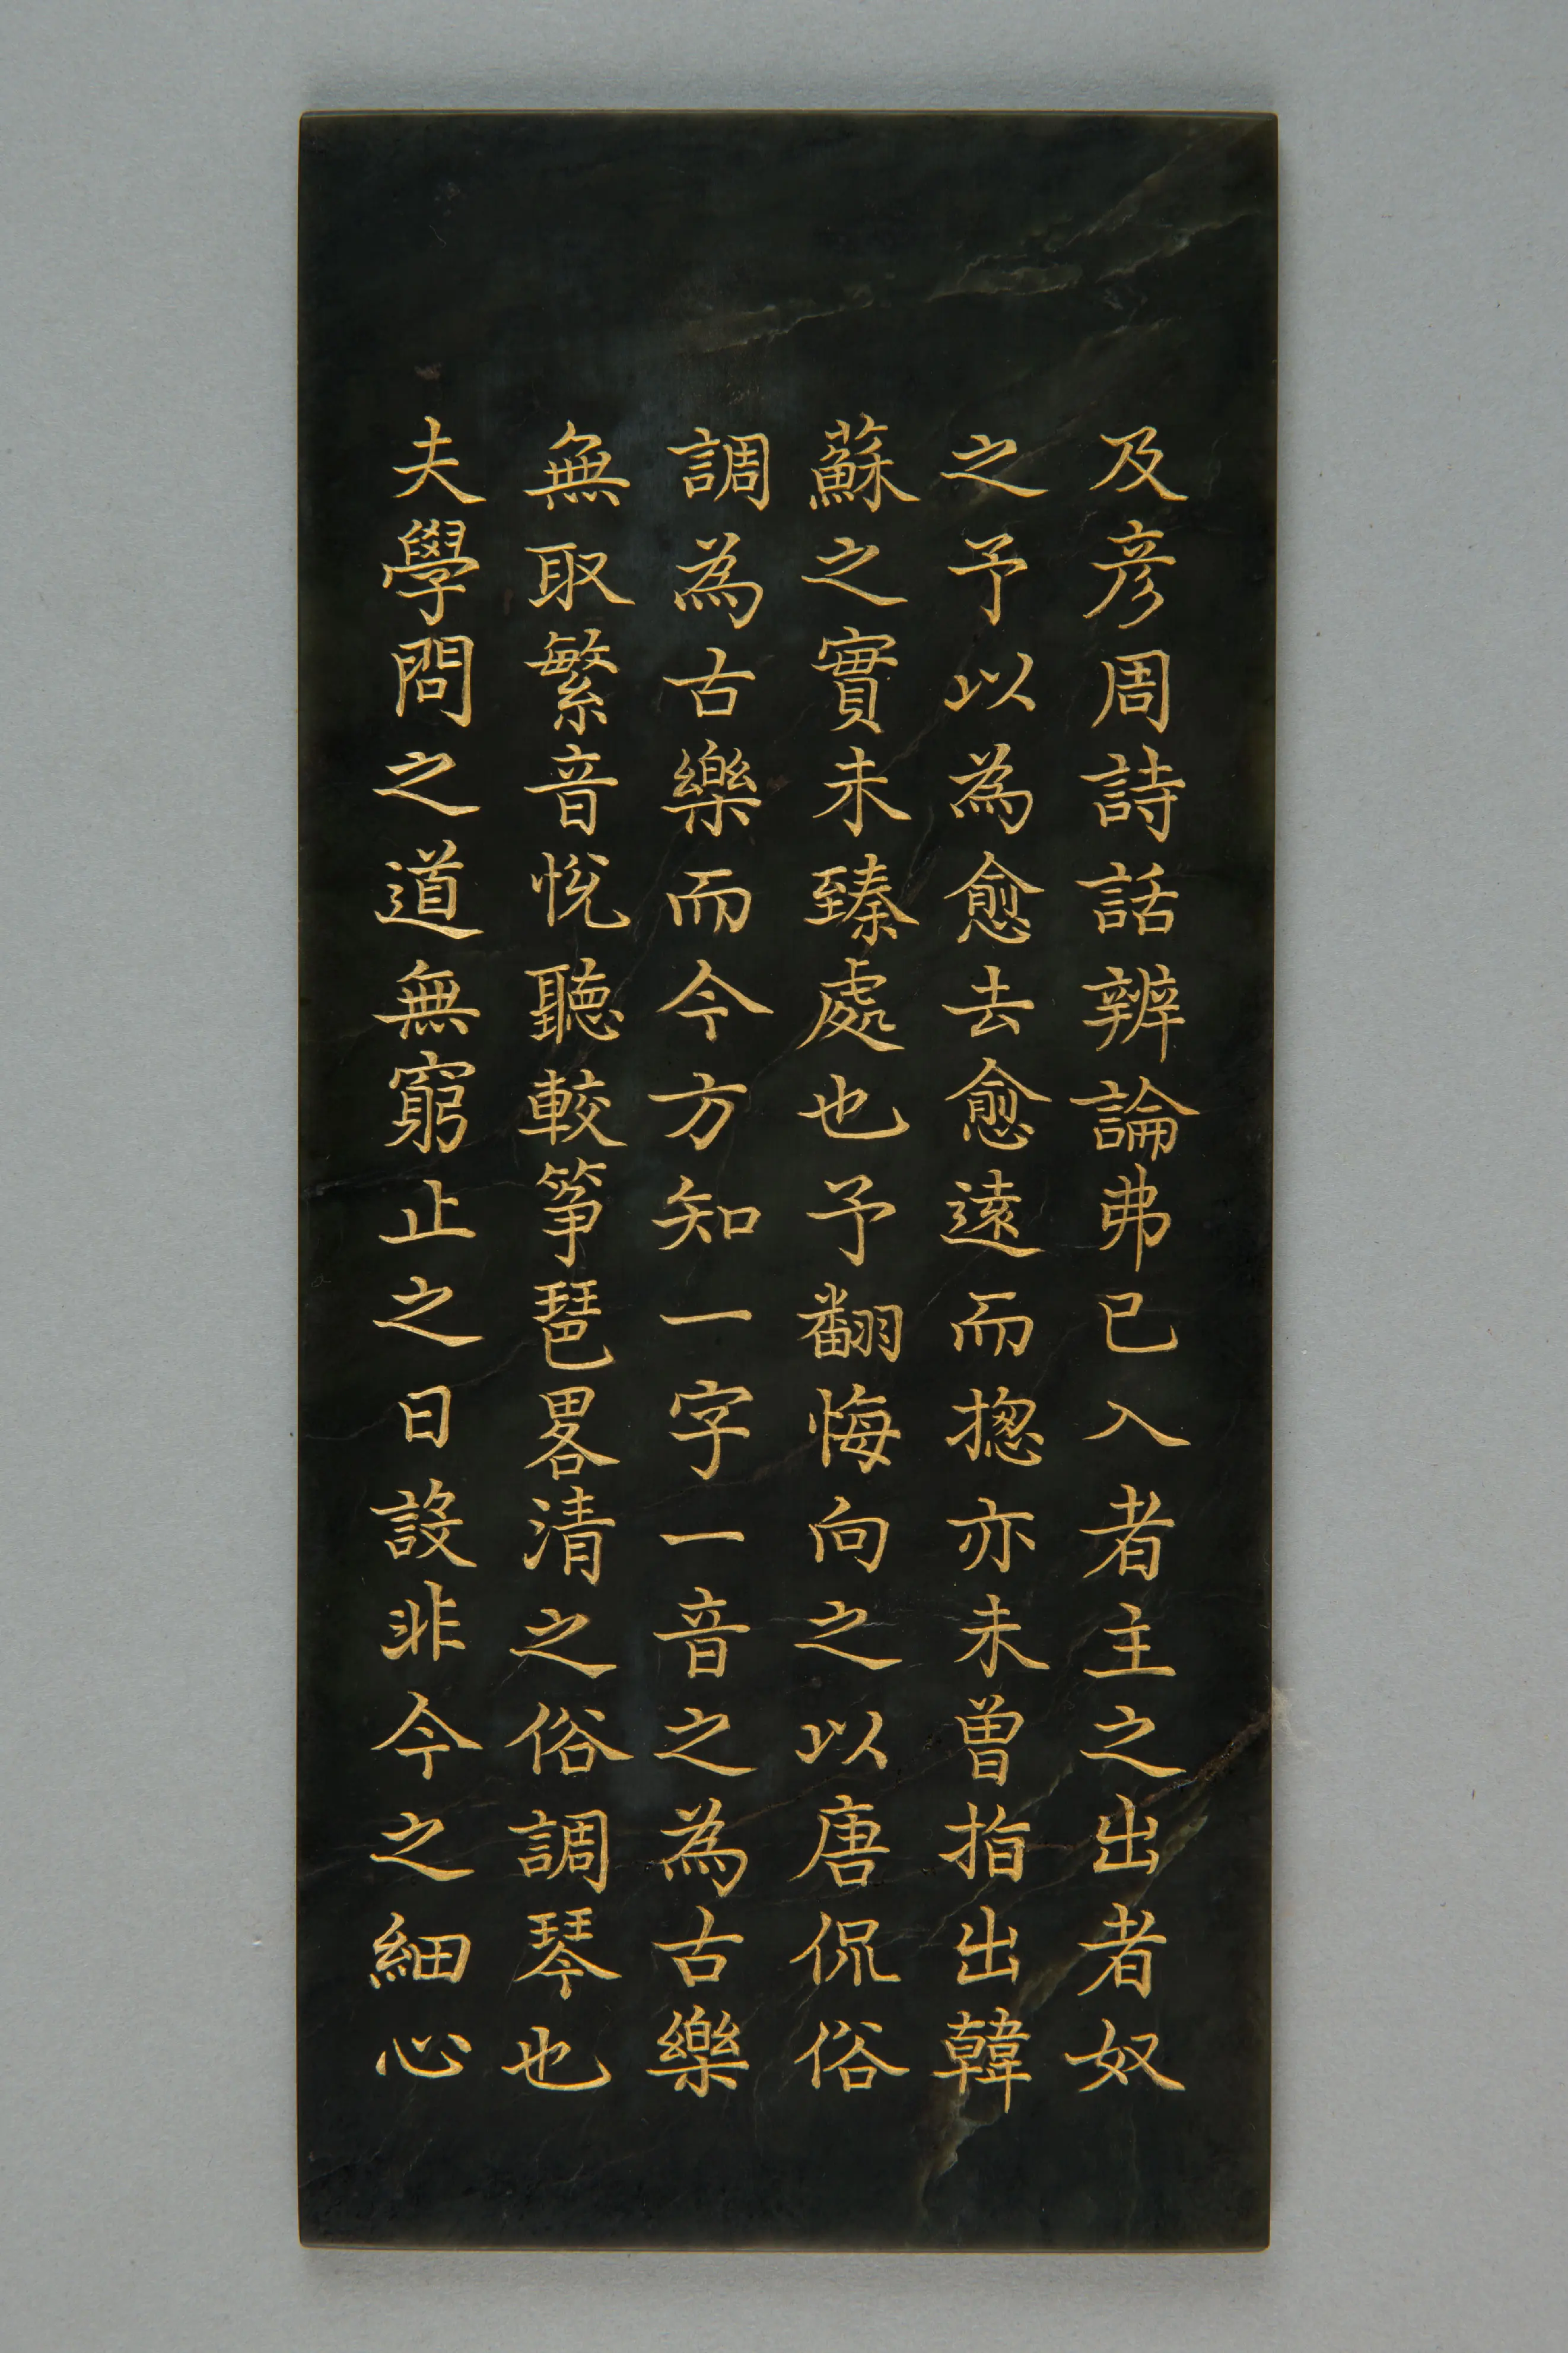 及彦周詩話辨論弗已入者主之出者奴
之予以為愈去愈遠而揔亦未曾指出韓
蘇之實未臻處也予翻悔向之以唐侃俗
調為古樂而今方知一字一音之為古樂
無取繁音悅聽較箏琶畧清之俗調琴也
夫學問之道無窮止之日設非今之細心